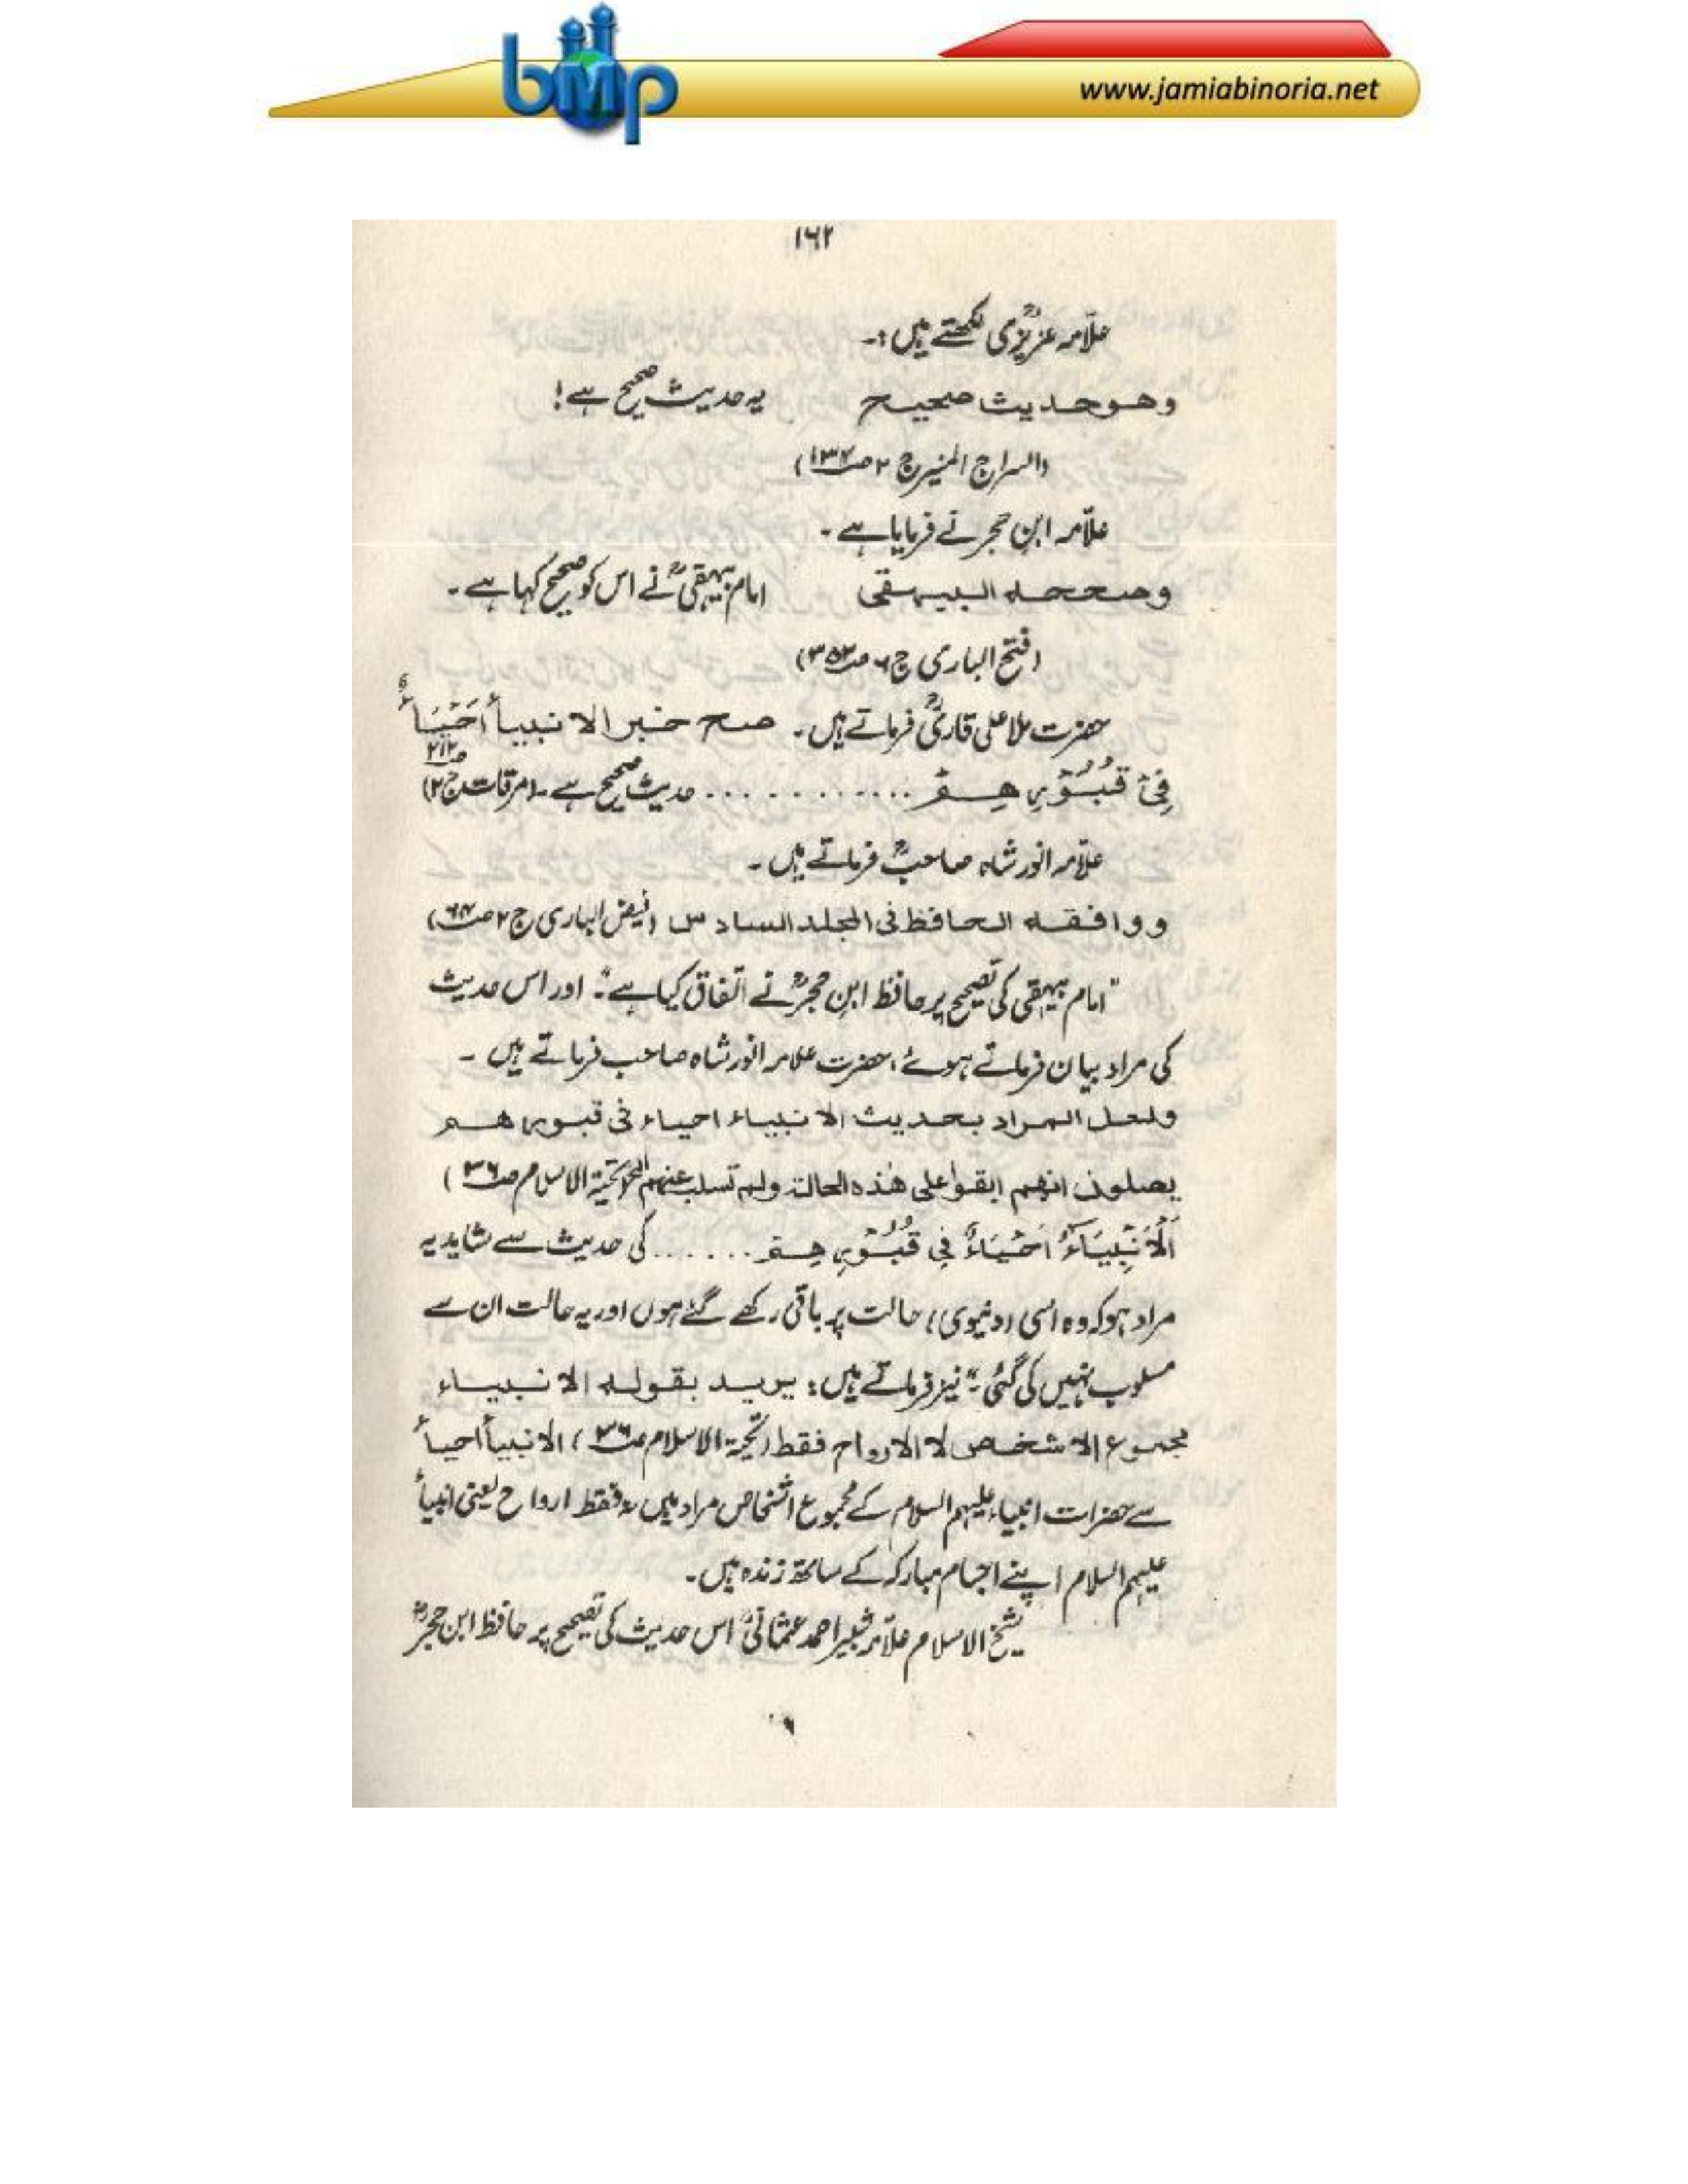 bmp
www.jamiabinoria.net
۱۶۲
علّامہ عزیزیؒ لکھتے ہیں :۔
وھوحدیث صحیح یہ حدیث صحیح ہے !
(السراج المنیر ج ۲ ص۱۳۴)
علّامہ ابن حجر نے فرمایا ہے ۔
وصححہ البیہقی امام بیہقیؒ نے اس کو صحیح کہا ہے ۔
(فتح الباری ج ۶ ص۳۵۲)
حضرت ملا علی قاریؒ فرماتے ہیں ۔ صح خبر الانبیأ اَحْیَاءٌ
فِیْ قُبُوْرِھِمْ ............ حدیث صحیح ہے ۔ (مرقات ج۲ ص۲۱۲)
علّامہ انور شاہ صاحبؒ فرماتے ہیں ۔
ووافقہ الحافظ فی المجلد السادس (فیض الباری ج ۲ ص۶۴)
"امام بیہقی کی تصحیح پر حافظ ابن حجرؒ نے اتفاق کیا ہے" اور اس حدیث
کی مراد بیان فرماتے ہوئے ، حضرت علامہ انور شاہ صاحب فرماتے ہیں ۔
ولعل المراد بحدیث الانبیاء احیاء فی قبورھم
یصلون انھم ابقوا علی ھٰذہ الحالۃ ولم تسلب عنھم الخ (تحیۃ الاسلام ص۳۶)
اَلْاَنْبِیَآءُ اَحْیَاءٌ فِی قُبُوْرِھِمْ ...... کی حدیث سے شاید یہ
مراد ہو کہ وہ اسی (دنیوی) حالت پر باقی رکھے گئے ہوں اور یہ حالت ان سے
مسلوب نہیں کی گئی" نیز فرماتے ہیں : یرید بقولہ الانبیاء
مجموع الاشخاص لا الارواح فقط (تحیۃ الاسلام ص۳۶) الانبیأ احیأ
سے حضرات انبیاء علیہم السلام کے مجموع اشخاص مراد ہیں نہ فقط ارواح یعنی انبیأ
علیہم السلام اپنے اجسام مبارکہ کے ساتھ زندہ ہیں ۔
شیخ الاسلام علّامہ شبیر احمد عثمانیؒ اس حدیث کی تصحیح پر حافظ ابن حجرؒ